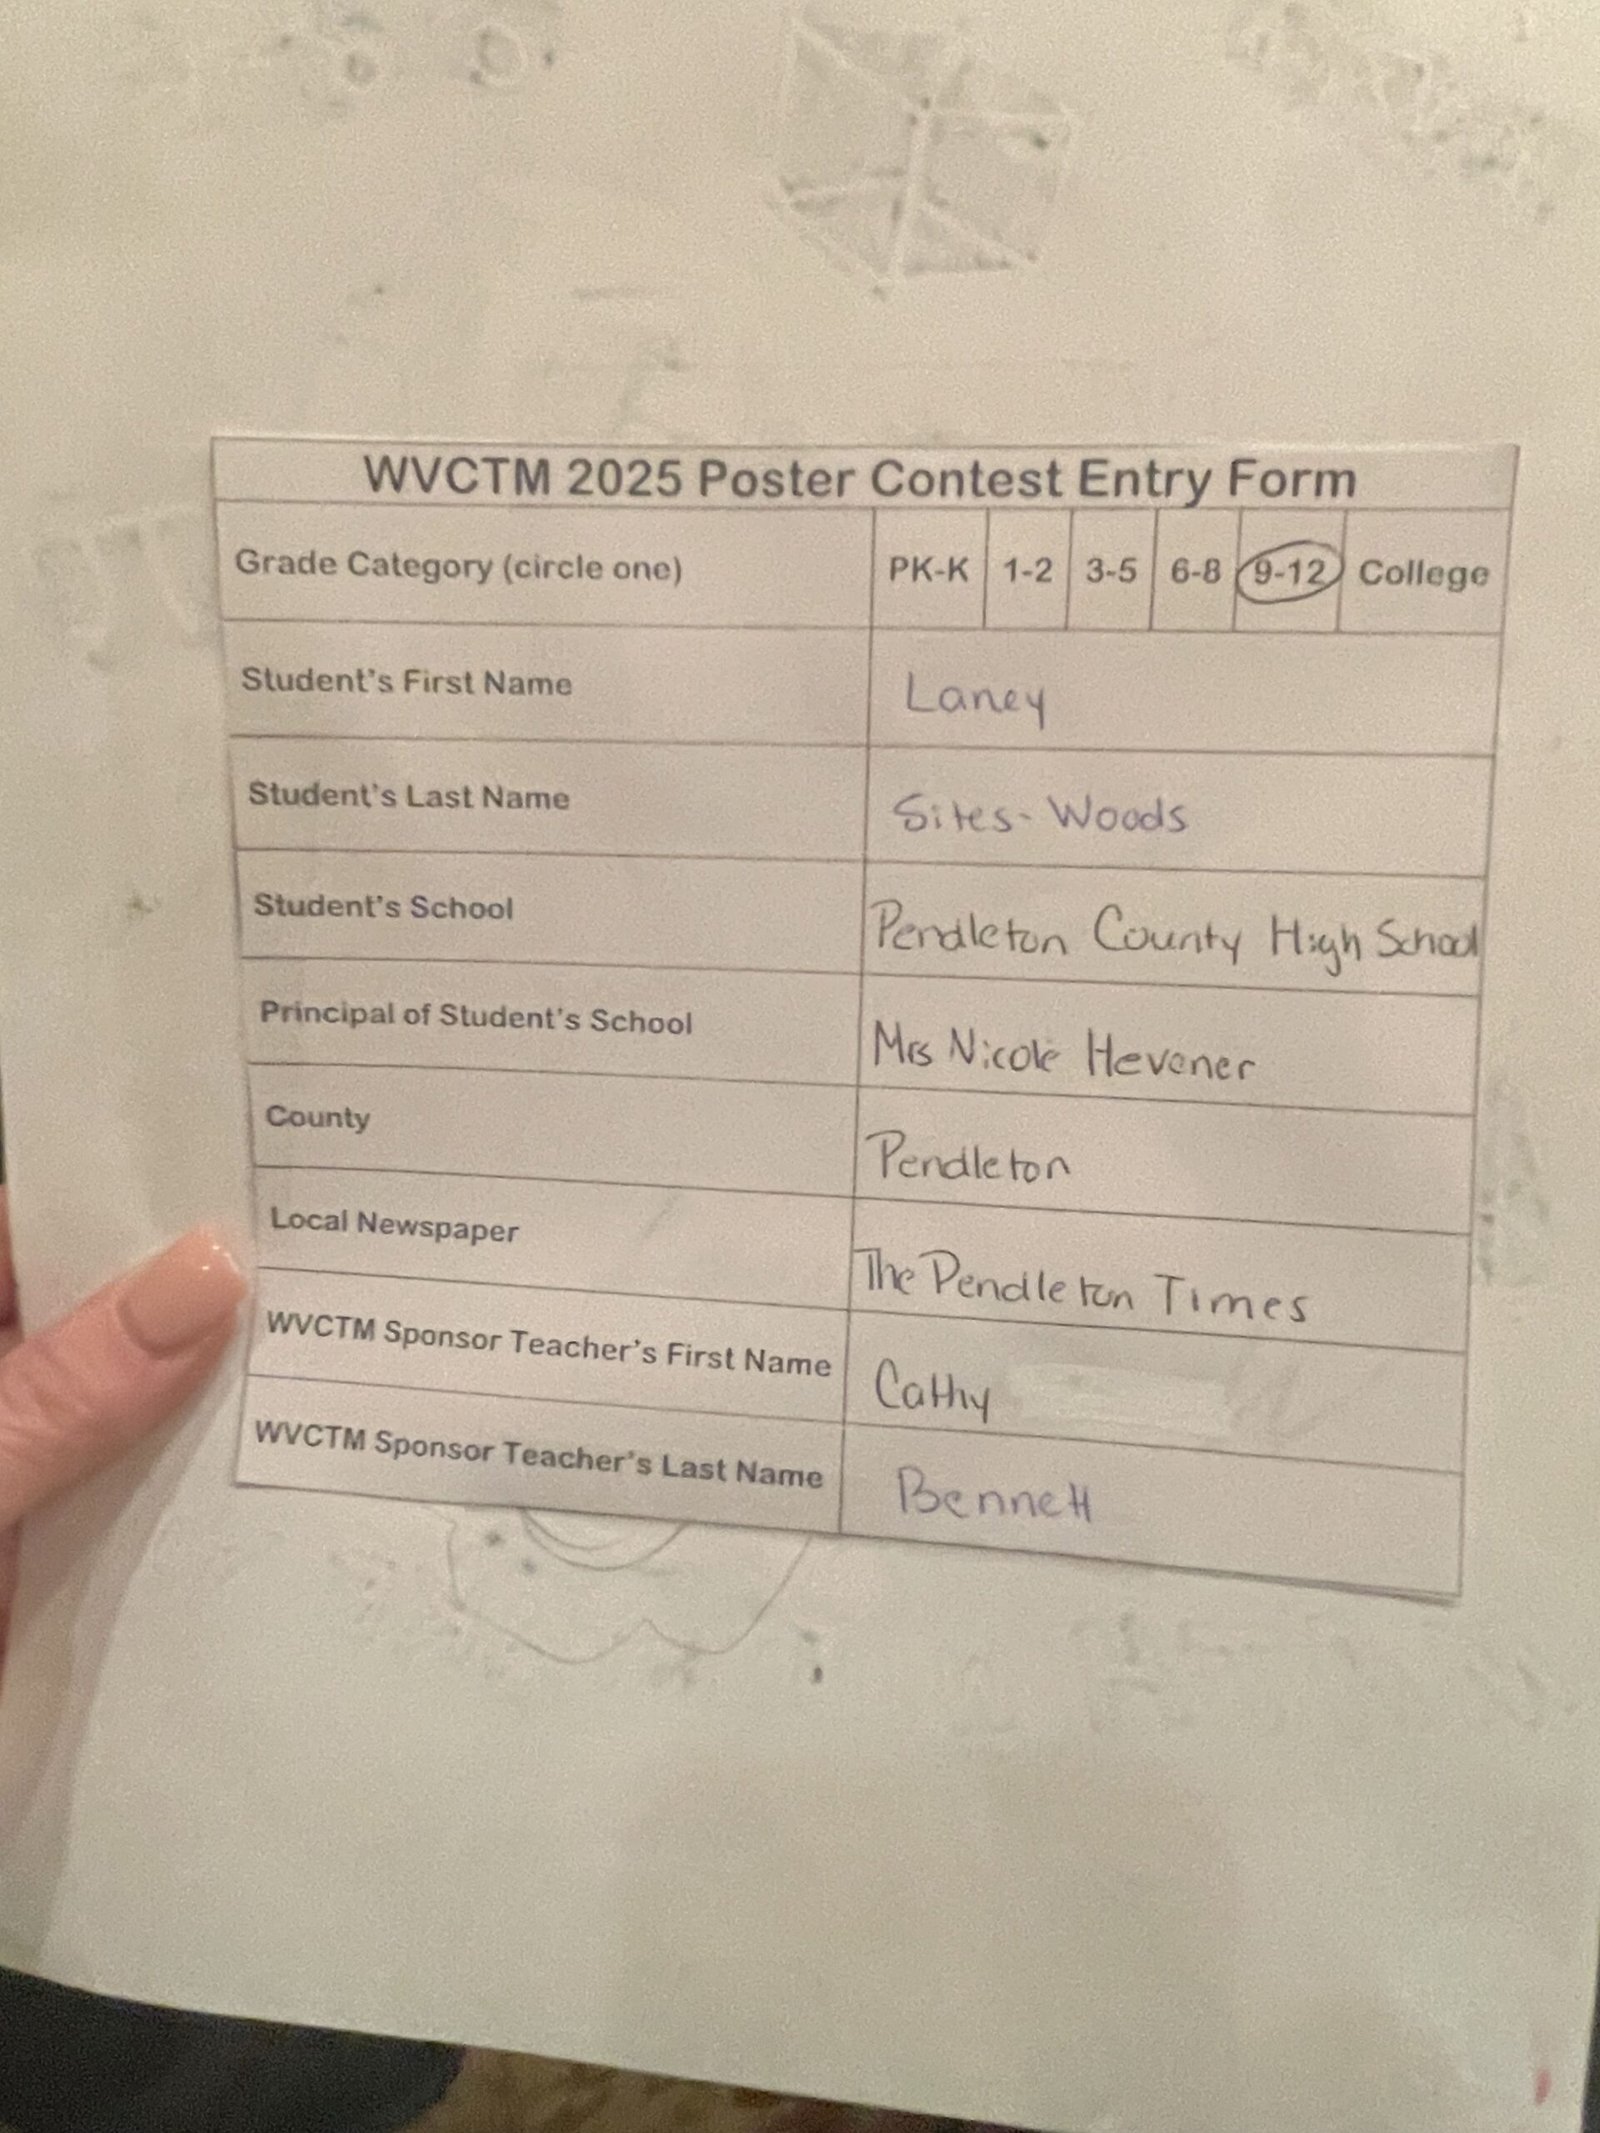 WVCTM 2025 Poster Contest Entry Form
Grade Category (circle one) PK-K 1-2 3-5 6-8 9-12 College
Student's First Name Laney
Student's Last Name Sites-Woods
Student's School Pendleton County High School
Principal of Student's School Mrs Nicole Hevener
County Pendleton
Local Newspaper The Pendleton Times
WVCTM Sponsor Teacher's First Name Cathy
WVCTM Sponsor Teacher's Last Name Bennett